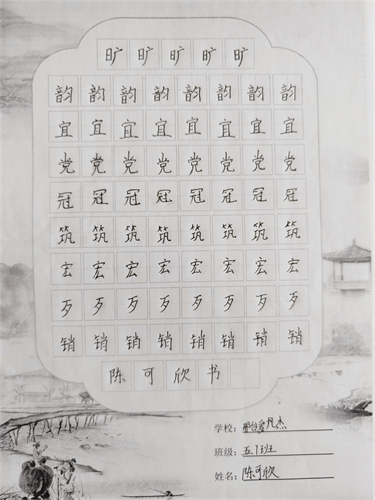 旷旷旷旷旷
韵韵韵韵韵韵韵韵
宜宜宜宜宜宜宜宜
党党党党党党党党
冠冠冠冠冠冠冠冠
筑筑筑筑筑筑筑筑
宏宏宏宏宏宏宏宏
歹歹歹歹歹歹歹歹
销销销销销销销销
陈可欣书
学校:凡杰
班级:五1班
姓名:陈可欣